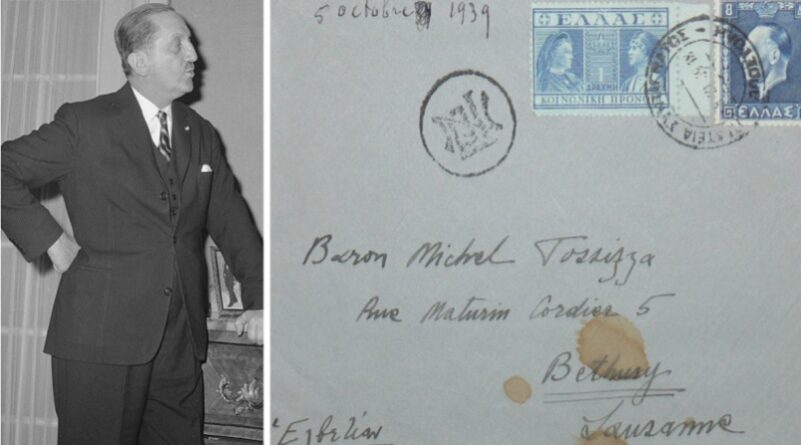 5 octobre 1939
ΕΛΛΑΣ
1
ΔΡΑΧΜΗ
ΚΟΙΝΩΝΙΚΗ ΠΡΟΝ
8
ΕΛΛΑΣ
Baron Michel Tossizza
Rue Maturin Cordier 5
Bethusy
Lausanne
'Ελβετίαν